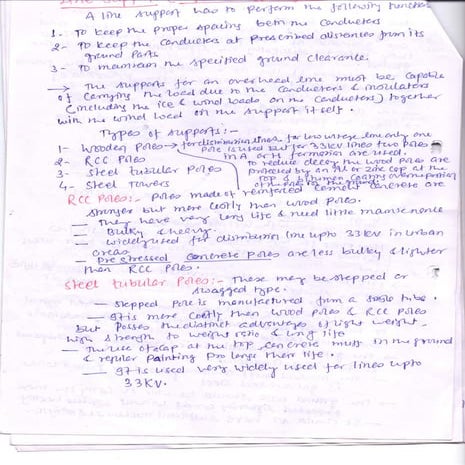 Line Supports
A line support has to perform the following functions
1- To keep the proper spacing betn the conductors
2- To keep the conductors at prescribed distances from its
ground parts
3- To maintain the specified ground clearance.
→ The supports for an overhead line must be capable
of carrying the load due to the conductors & insulators
(including the ice & wind loads on the conductors) together
with the wind load on the support itself.
Types of supports:-
1- Wooden Poles → for distribution lines for low voltage line only one
pole is used but for 33KV lines two poles
in A or H formation are used.
2- RCC Poles
to reduce decay the wood poles are
3- Steel tubular Poles
protected by an Al or zinc cap at the
4- Steel towers
top & bitumen coating
RCC Poles:- Poles made of reinforced cement concrete are
stronger but more costly than wood poles.
— They have very long life & need little maintenance
— Bulky & heavy.
— widely used for distribution line upto 33KV in urban
areas
— Pre stressed concrete poles are less bulky & lighter
than RCC Poles.
Steel tubular Poles:- These may be stepped or
swaged type.
— stepped pole is manufactured from a tube.
— It is more costly than wood poles & RCC poles
but posses the distinct advantage of light weight,
high strength to weight ratio & long life
— The use of cap at the top, concrete muff in the ground
& regular painting prolongs their life.
— It is used very widely used for lines upto
33KV.